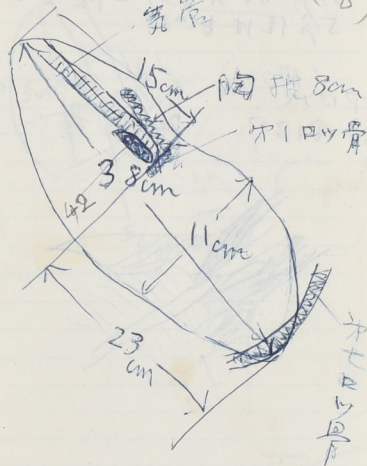 気管
15cm
胸 8cm
オ1ロッ骨
38cm
42
11cm
23
cm
オ七ロッ骨